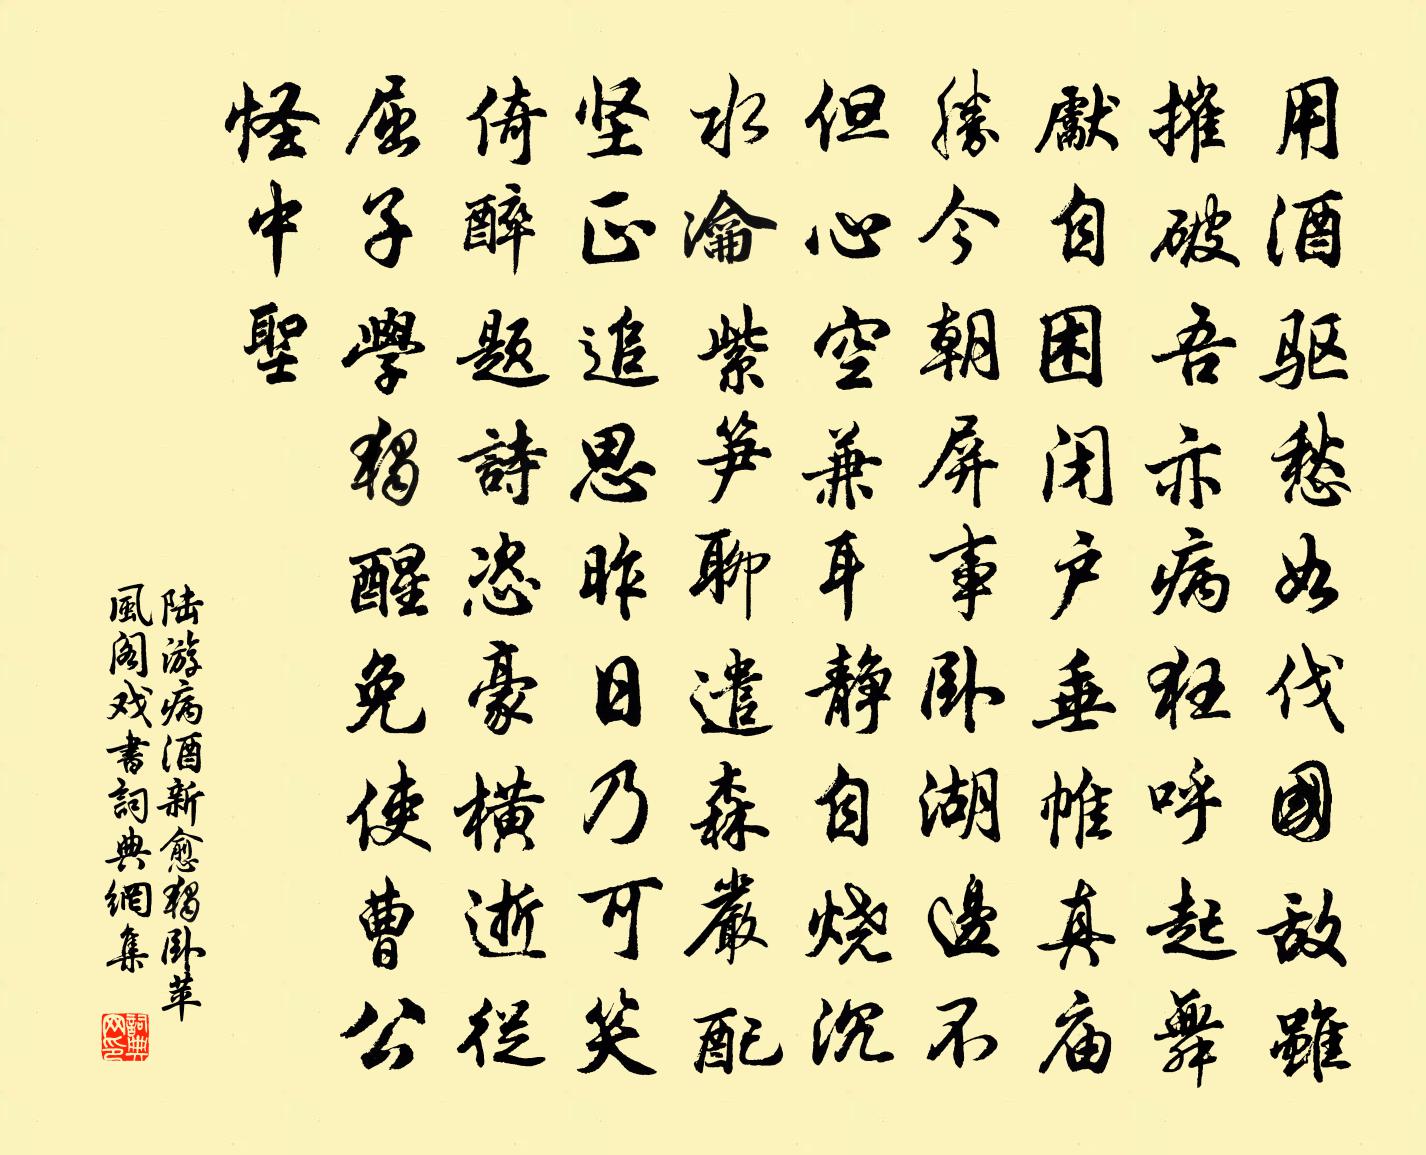 用酒驱愁如伐國敌雖
摧破吾亦病狂呼起舞
獻自困闭户垂帷真庙
勝今朝屏事卧湖邊不
但心空兼耳静自烧沉
水瀹紫笋聊遣森嚴配
坚正追思昨日乃可笑
倚醉题詩恣豪横逝從
屈子學獨醒免使曹公
怪中聖
陆游病酒新愈獨卧苹
風阁戏書詞典網集
詞典
网印